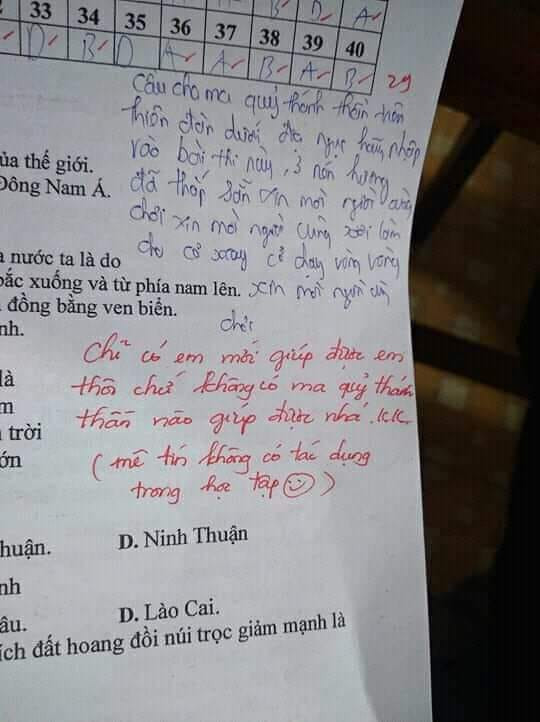 33 34 35 36 37 38 39 40
D B D A A B A B 29
B D A
Cầu cho ma quỷ thánh thần trên
thiên đàn dưới địa ngục hãy nhập
vào bài thi này, 3 nén hương
đã thắp sẵn xin mời người cùng
chơi xin mời người cùng xơi
cơ xoay cơ chạy vòng vòng
xin mời người
chơi
ủa thế giới.
Đông Nam Á.
a nước ta là do
bắc xuống và từ phía nam lên.
đồng bằng ven biển.
nh.
Chỉ có em mới giúp được em
thôi chứ không có ma quỷ thánh
thần nào giúp được nhá. KK.
(mê tín không có tác dụng
trong học tập ☺)
là
m
trời
ớn
huận. D. Ninh Thuận
nh
âu. D. Lào Cai.
ích đất hoang đồi núi trọc giảm mạnh là